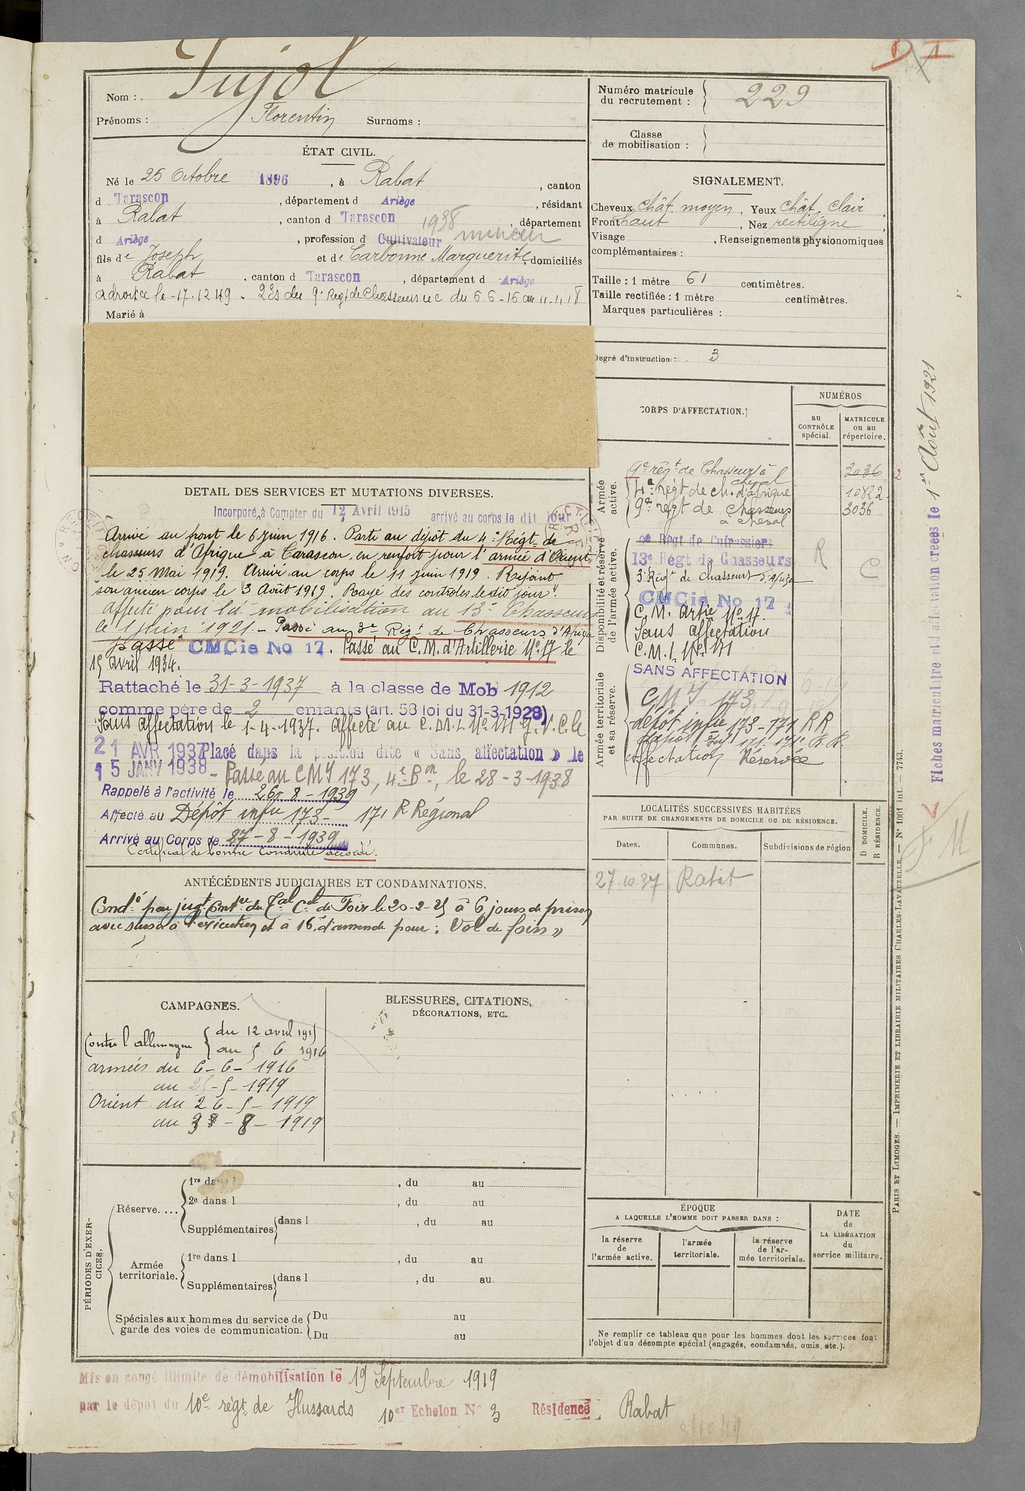 Nom : Pujol
Prénoms : Florentin Surnoms :
Numéro matricule du recrutement : 229
Classe de mobilisation :
ÉTAT CIVIL.
Né le 25 Octobre 1896, à Rabat, canton
d Tarascon, département d Ariège, résidant
à Rabat, canton d Tarascon 1938, département
d Ariège, profession d Cultivateur
fils de Joseph et de Carbonne Marguerite, domiciliés
à Rabat, canton d Tarascon, département d Ariège
Marié à
SIGNALEMENT.
Cheveux chât. moyen, Yeux chât. clair
Front haut, Nez rectiligne
Visage , Renseignements physionomiques
complémentaires :
Taille : 1 mètre 61 centimètres.
Taille rectifiée : 1 mètre centimètres.
Marques particulières :
Degré d'instruction : 3
CORPS D'AFFECTATION.
NUMÉROS
au CONTRÔLE spécial.
MATRICULE ou au répertoire.
Armée active.
9e régt de Chasseurs à cheval 3036
4e Régt de ch. d'afrique 10822
9e régt de chasseurs à cheval 3036
Disponibilité et réserve de l'armée active.
9e Régt de Cuirassiers
13e Régt de Chasseurs R C
3e Régt de chasseurs d'afrique
CMCie No 17
C.M. Artie No 17.
Sans affectation
C.M.I. No 171
Armée territoriale et sa réserve.
SANS AFFECTATION
CMI 173
dépôt infie 173-171 RR
affectation Réservée
DÉTAIL DES SERVICES ET MUTATIONS DIVERSES.
Incorporé à Compter du 12 Avril 1915 arrivé au corps le dit jour
Arrivé au front le 6 juin 1916. Parti au dépôt du 4e Régt de
chasseurs d'Afrique à Tarascon, en renfort pour l'armée d'Orient
le 25 Mai 1919. Arrivé au corps le 11 juin 1919. Rejoint
son ancien corps le 3 Août 1919. Rayé des contrôles le dit jour.
Affecté pour la mobilisation au 13e Chasseurs
le 1 Juin 1921 - Passé au 3e Régt de Chasseurs d'Afrique
passé CMCie No 17. Passé au C.M. d'Artillerie No 17 le
15 avril 1934.
Rattaché le 31-3-1937 à la classe de Mob 1912
comme père de 2 enfants (art. 58 loi du 31-3-1928)
Sans affectation le 1-4-1937. Affecté au C.M.I. No 171
21 AVR 1937 Placé dans la position dite « Sans affectation » le
15 JANV 1938 - Passé au CMI 173, 4e Bon, le 28-3-1938
Rappelé à l'activité le 26-8-1939
Affecté au Dépôt infie 173 - 171 R Régional
Arrivé au Corps le 27-8-1939
Certificat de bonne conduite accordé.
LOCALITÉS SUCCESSIVES HABITÉES
PAR SUITE DE CHANGEMENTS DE DOMICILE OU DE RÉSIDENCE.
Dates. Communes. Subdivisions de région D DOMICILE. R RÉSIDENCE.
27-10-37 Rabat
ANTÉCÉDENTS JUDICIAIRES ET CONDAMNATIONS.
Condé par jugt Contre du Tal Cel de Foix le 20-2-25 à 6 jours de prison
avec sursis à l'exécution et à 16f d'amende pour : Vol de foin »
CAMPAGNES.
Contre l'allemagne du 12 avril 1915
au 5 6 1916
armées du 6-6-1916
au 25-5-1919
Orient du 26-5-1919
au 3-8-1919
BLESSURES, CITATIONS,
DÉCORATIONS, ETC.
PÉRIODES D'EXERCICES.
Réserve....
1re dans l , du au
2e dans l , du au
Supplémentaires dans l , du au
Armée territoriale.
1re dans l , du au
Supplémentaires dans l , du au
Spéciales aux hommes du service de garde des voies de communication.
Du au
Du au
ÉPOQUE
A LAQUELLE L'HOMME DOIT PASSER DANS :
la réserve de l'armée active.
l'armée territoriale.
la réserve de l'armée territoriale.
DATE de LA LIBÉRATION du service militaire.
Ne remplir ce tableau que pour les hommes dont les services font
l'objet d'un décompte spécial (engagés, condamnés, omis, etc.).
Mis en congé illimité de démobilisation le 19 Septembre 1919
par le dépôt du 10e régt de Hussards 10er Echelon No 3 Résidence Rabat
Fiches matriculaire et d'affectation créées le 1er Août 1921
FM
PARIS ET LIMOGES. — IMPRIMERIE ET LIBRAIRIE MILITAIRES CHARLES-LAVAUZELLE. — No 1001 int. — 7743.